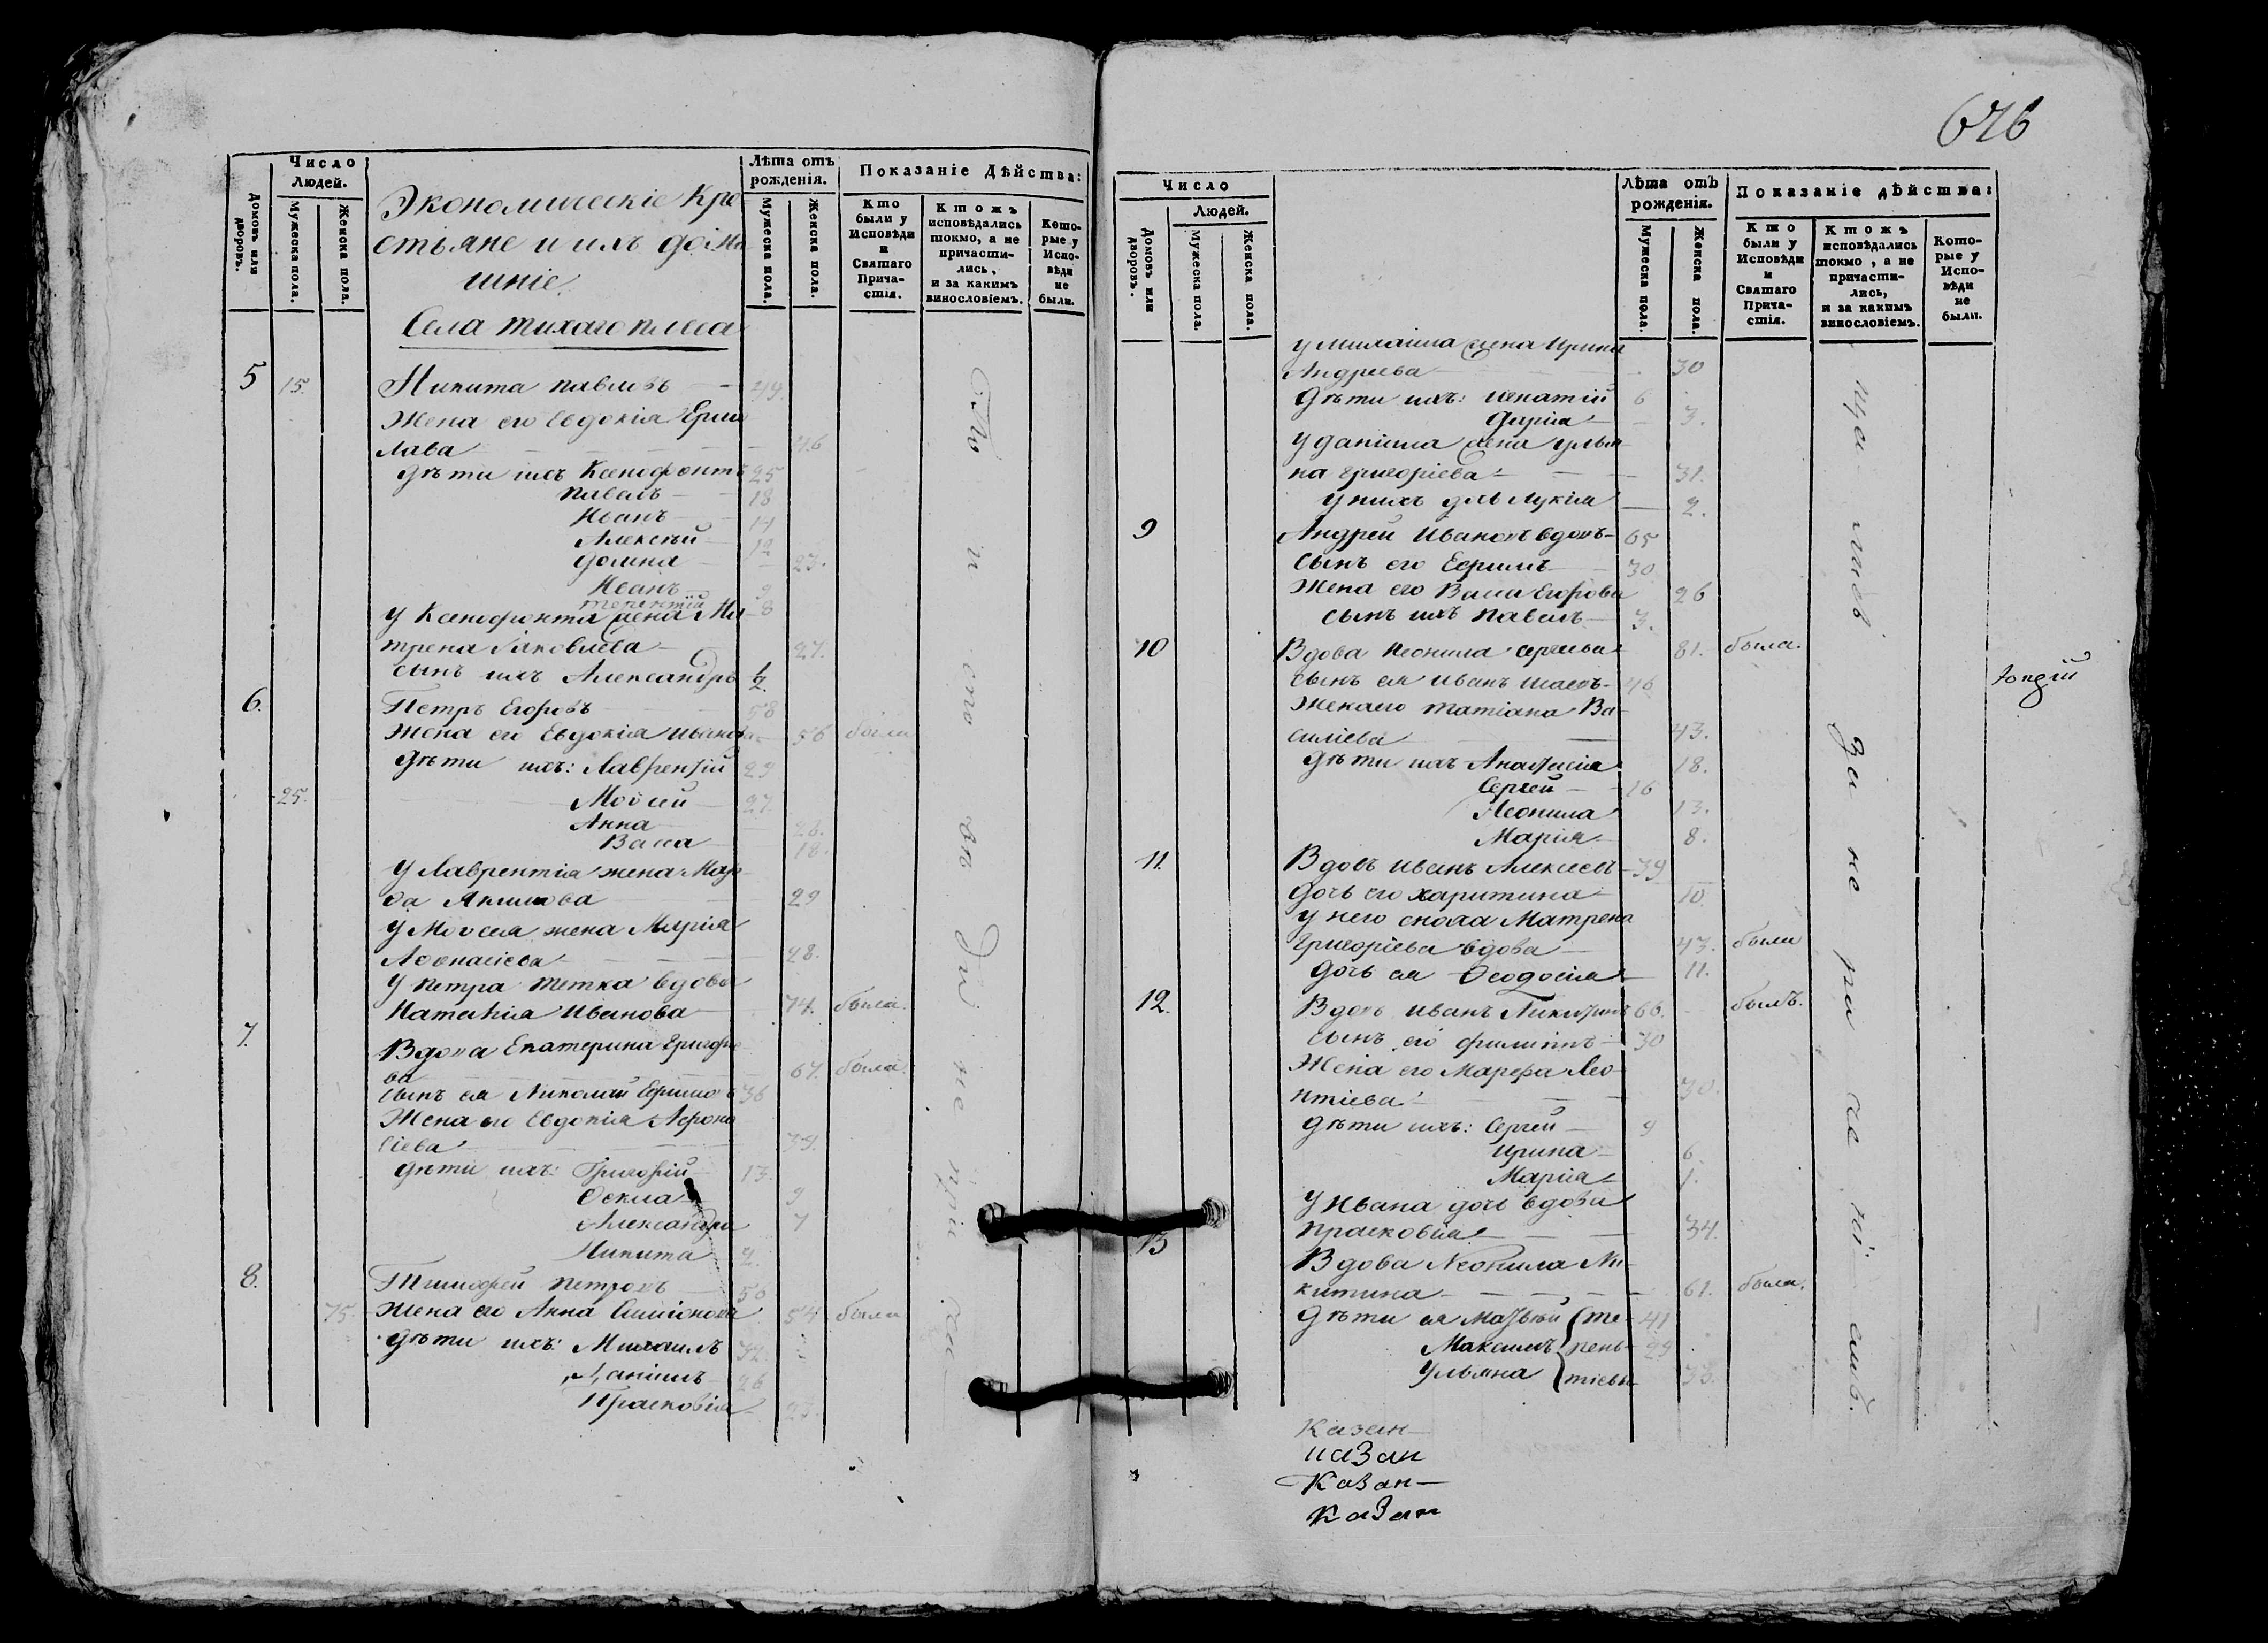 Число
Людей.
Домовъ или
дворовъ.
Мужеска пола.
Женска пола.
Экономическіе Кре
стьяне и ихъ дома
шніе.
Села тихаго плеса
Лѣта отъ
рожденія.
Мужеска пола.
Женска пола.
Показаніе Дѣйства:
Кто
были у
Исповѣди
и
Святаго
Прича-
стія.
Ктожъ
исповѣдались
токмо, а не
причасти-
лись,
и за какимъ
винословіемъ.
Кото-
рые у
Испо-
вѣди
не
были.
5 15. Никита павловъ
Жена его Евдокія Ерми
лава 46
дѣти ихъ Ксенофонтъ 25
павелъ 18
Иванъ 14
Алексѣй 12
домна 23.
Иванъ 9
терентій 8
У Ксенофонта жена Ма
трена Яковлева 27.
сынъ ихъ Александръ 1/2.
6. Петръ Егоровъ 58
Жена его Евдокія Иванова 56 были
дѣти ихъ: Лаврентій 29
25. Моѵсей 27.
Анна 26.
Васса 18.
У Лаврентія жена Мар
ѳа Акимова 29
У Моѵсея жена Марія
Аѳонасіева 28.
У петра тетка вдова
Наталія Иванова 74. была.
7. Вдова Екатерина Григорье
ва 67. была.
сынъ ея Николай Ефимовъ 36
Жена его Евдокія Афона
сіева 39.
дѣти ихъ: Григорій 13.
Ѳекла 9
Александра 7
Никита 2.
8. Тимофей петровъ 50
75. Жена его Анна Симіонова 54 были
дѣти ихъ: Михаилъ 32.
Даніилъ 26
Прасковія 23.
676
Число
Людей.
Домовъ или
дворовъ.
Мужеска пола.
Женска пола.
Лѣта отъ
рожденія.
Мужеска пола.
Женска пола.
Показаніе дѣйства:
Кто
были у
Исповѣди
и
Святаго
Прича-
стія.
Ктожъ
исповѣдались
токмо, а не
причасти-
лись,
и за какимъ
винословіемъ.
Кото-
рые у
Испо-
вѣди
не
были.
у михаила жена Ирина
Андреева 30
дѣти ихъ: игнатій 6
дарія 3.
у даніила жена улья
на григоріева 31.
у нихъ Лукія 2.
9 Андрей Ивановъ вдовъ 65
сынъ его Ефимъ 30.
Жена его Васса Егорова 26
сынъ ихъ павелъ 3.
10 Вдова Неонила сергеева 81. была.
сынъ ея иванъ 46
Жена его татіана Ва-
силіева 43.
дѣти ихъ Анастасія 18.
Сергей 16
Неонила 13.
Марія 8.
11. Вдовъ иванъ Алексеевъ 39
дочь его харитина 10.
у него сноха Матрена
григоріева вдова 43. были
дочь ея Ѳеодосія 11.
12. Вдовъ иванъ Никитинъ 66. былъ.
сынъ его филиппъ 30
Жена его Марефа Лео
нтіева 30.
дѣти ихъ: Сергей 9
ирина 6
Марія 1.
у Ивана дочь вдова
прасковія 34.
13 Вдова Неонила Ни-
китина 61. была.
дѣти ея Матвѣй (те- 41
Максимъ рень- 29
Ульяна тіевы 33.
Казан
казан
Казан
казан